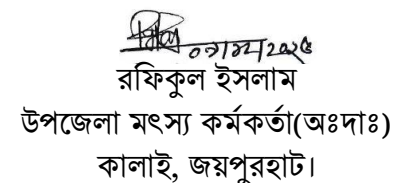 ০৭/১২/২০২৫
রফিকুল ইসলাম
উপজেলা মৎস্য কর্মকর্তা(অঃদাঃ)
কালাই, জয়পুরহাট।